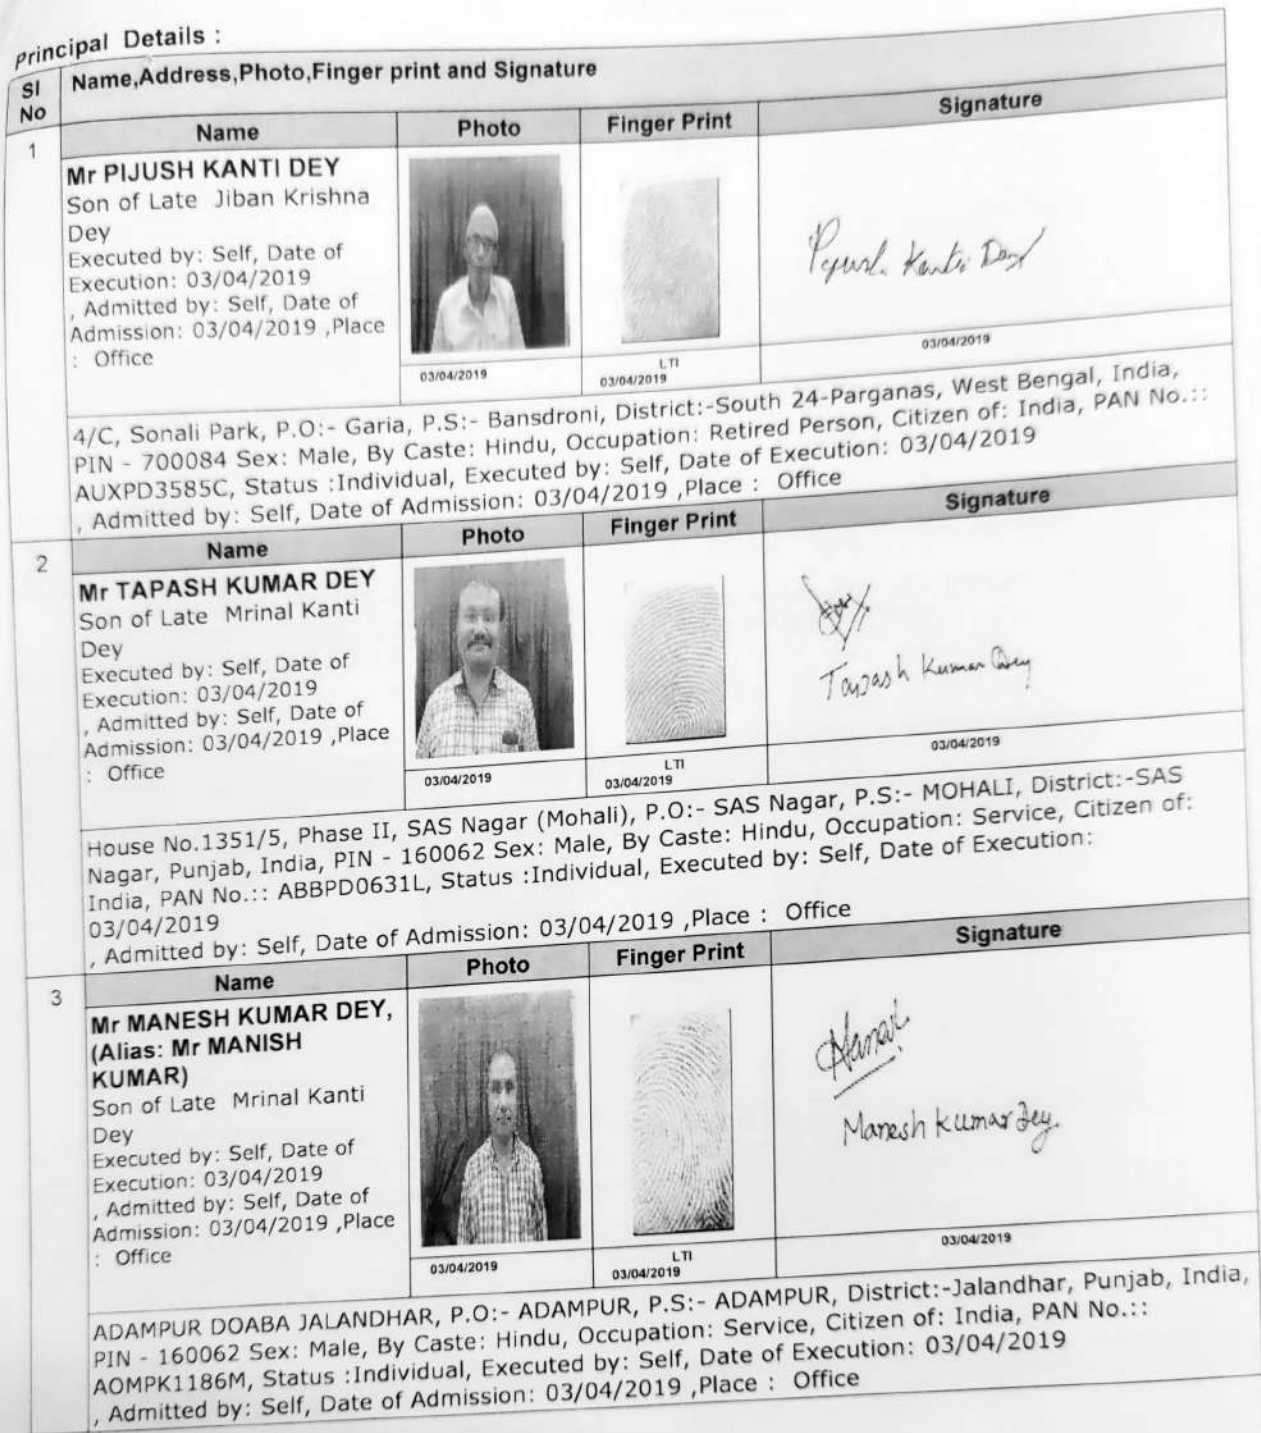 Principal Details :
Sl No
Name,Address,Photo,Finger print and Signature
1
Name
Photo
Finger Print
Signature
Mr PIJUSH KANTI DEY
Son of Late Jiban Krishna
Dey
Executed by: Self, Date of
Execution: 03/04/2019
, Admitted by: Self, Date of
Admission: 03/04/2019 ,Place
: Office
03/04/2019
LTI
03/04/2019
Kanti Dey
03/04/2019
4/C, Sonali Park, P.O:- Garia, P.S:- Bansdroni, District:-South 24-Parganas, West Bengal, India,
PIN - 700084 Sex: Male, By Caste: Hindu, Occupation: Retired Person, Citizen of: India, PAN No.::
AUXPD3585C, Status :Individual, Executed by: Self, Date of Execution: 03/04/2019
, Admitted by: Self, Date of Admission: 03/04/2019 ,Place : Office
2
Name
Photo
Finger Print
Signature
Mr TAPASH KUMAR DEY
Son of Late Mrinal Kanti
Dey
Executed by: Self, Date of
Execution: 03/04/2019
, Admitted by: Self, Date of
Admission: 03/04/2019 ,Place
: Office
03/04/2019
LTI
03/04/2019
Tapash Kumar Dey
03/04/2019
House No.1351/5, Phase II, SAS Nagar (Mohali), P.O:- SAS Nagar, P.S:- MOHALI, District:-SAS
Nagar, Punjab, India, PIN - 160062 Sex: Male, By Caste: Hindu, Occupation: Service, Citizen of:
India, PAN No.:: ABBPD0631L, Status :Individual, Executed by: Self, Date of Execution:
03/04/2019
, Admitted by: Self, Date of Admission: 03/04/2019 ,Place : Office
3
Name
Photo
Finger Print
Signature
Mr MANESH KUMAR DEY,
(Alias: Mr MANISH
KUMAR)
Son of Late Mrinal Kanti
Dey
Executed by: Self, Date of
Execution: 03/04/2019
, Admitted by: Self, Date of
Admission: 03/04/2019 ,Place
: Office
03/04/2019
LTI
03/04/2019
Manesh Kumar Dey.
03/04/2019
ADAMPUR DOABA JALANDHAR, P.O:- ADAMPUR, P.S:- ADAMPUR, District:-Jalandhar, Punjab, India,
PIN - 160062 Sex: Male, By Caste: Hindu, Occupation: Service, Citizen of: India, PAN No.::
AOMPK1186M, Status :Individual, Executed by: Self, Date of Execution: 03/04/2019
, Admitted by: Self, Date of Admission: 03/04/2019 ,Place : Office